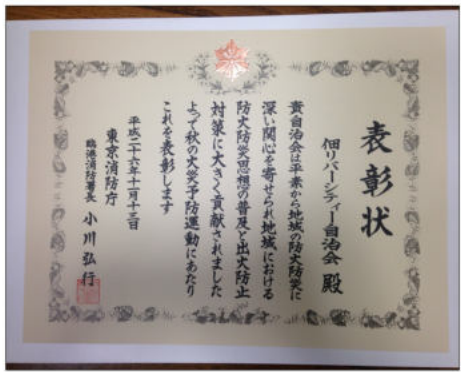 表彰状
佃リバーシティー自治会 殿
貴自治会は平素から地域の防火防災に
深い関心を寄せられ地域における
防火防災思想の普及と出火防止
対策に大きく貢献されました
よって秋の火災予防運動にあたり
これを表彰します
平成二十六年十一月十三日
東京消防庁
臨港消防署長 小川弘行